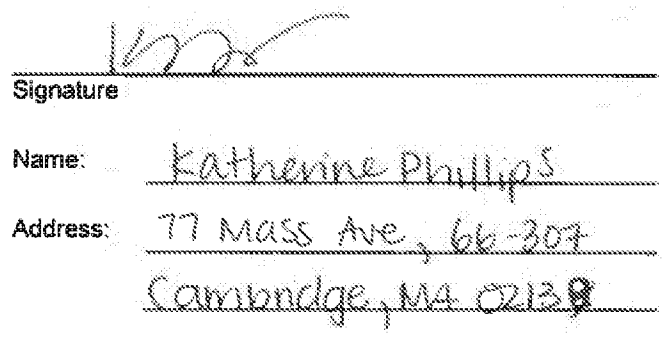 Signature
Name: Katherine Phillips
Address: 77 Mass Ave, 66-307
Cambridge, MA 02139